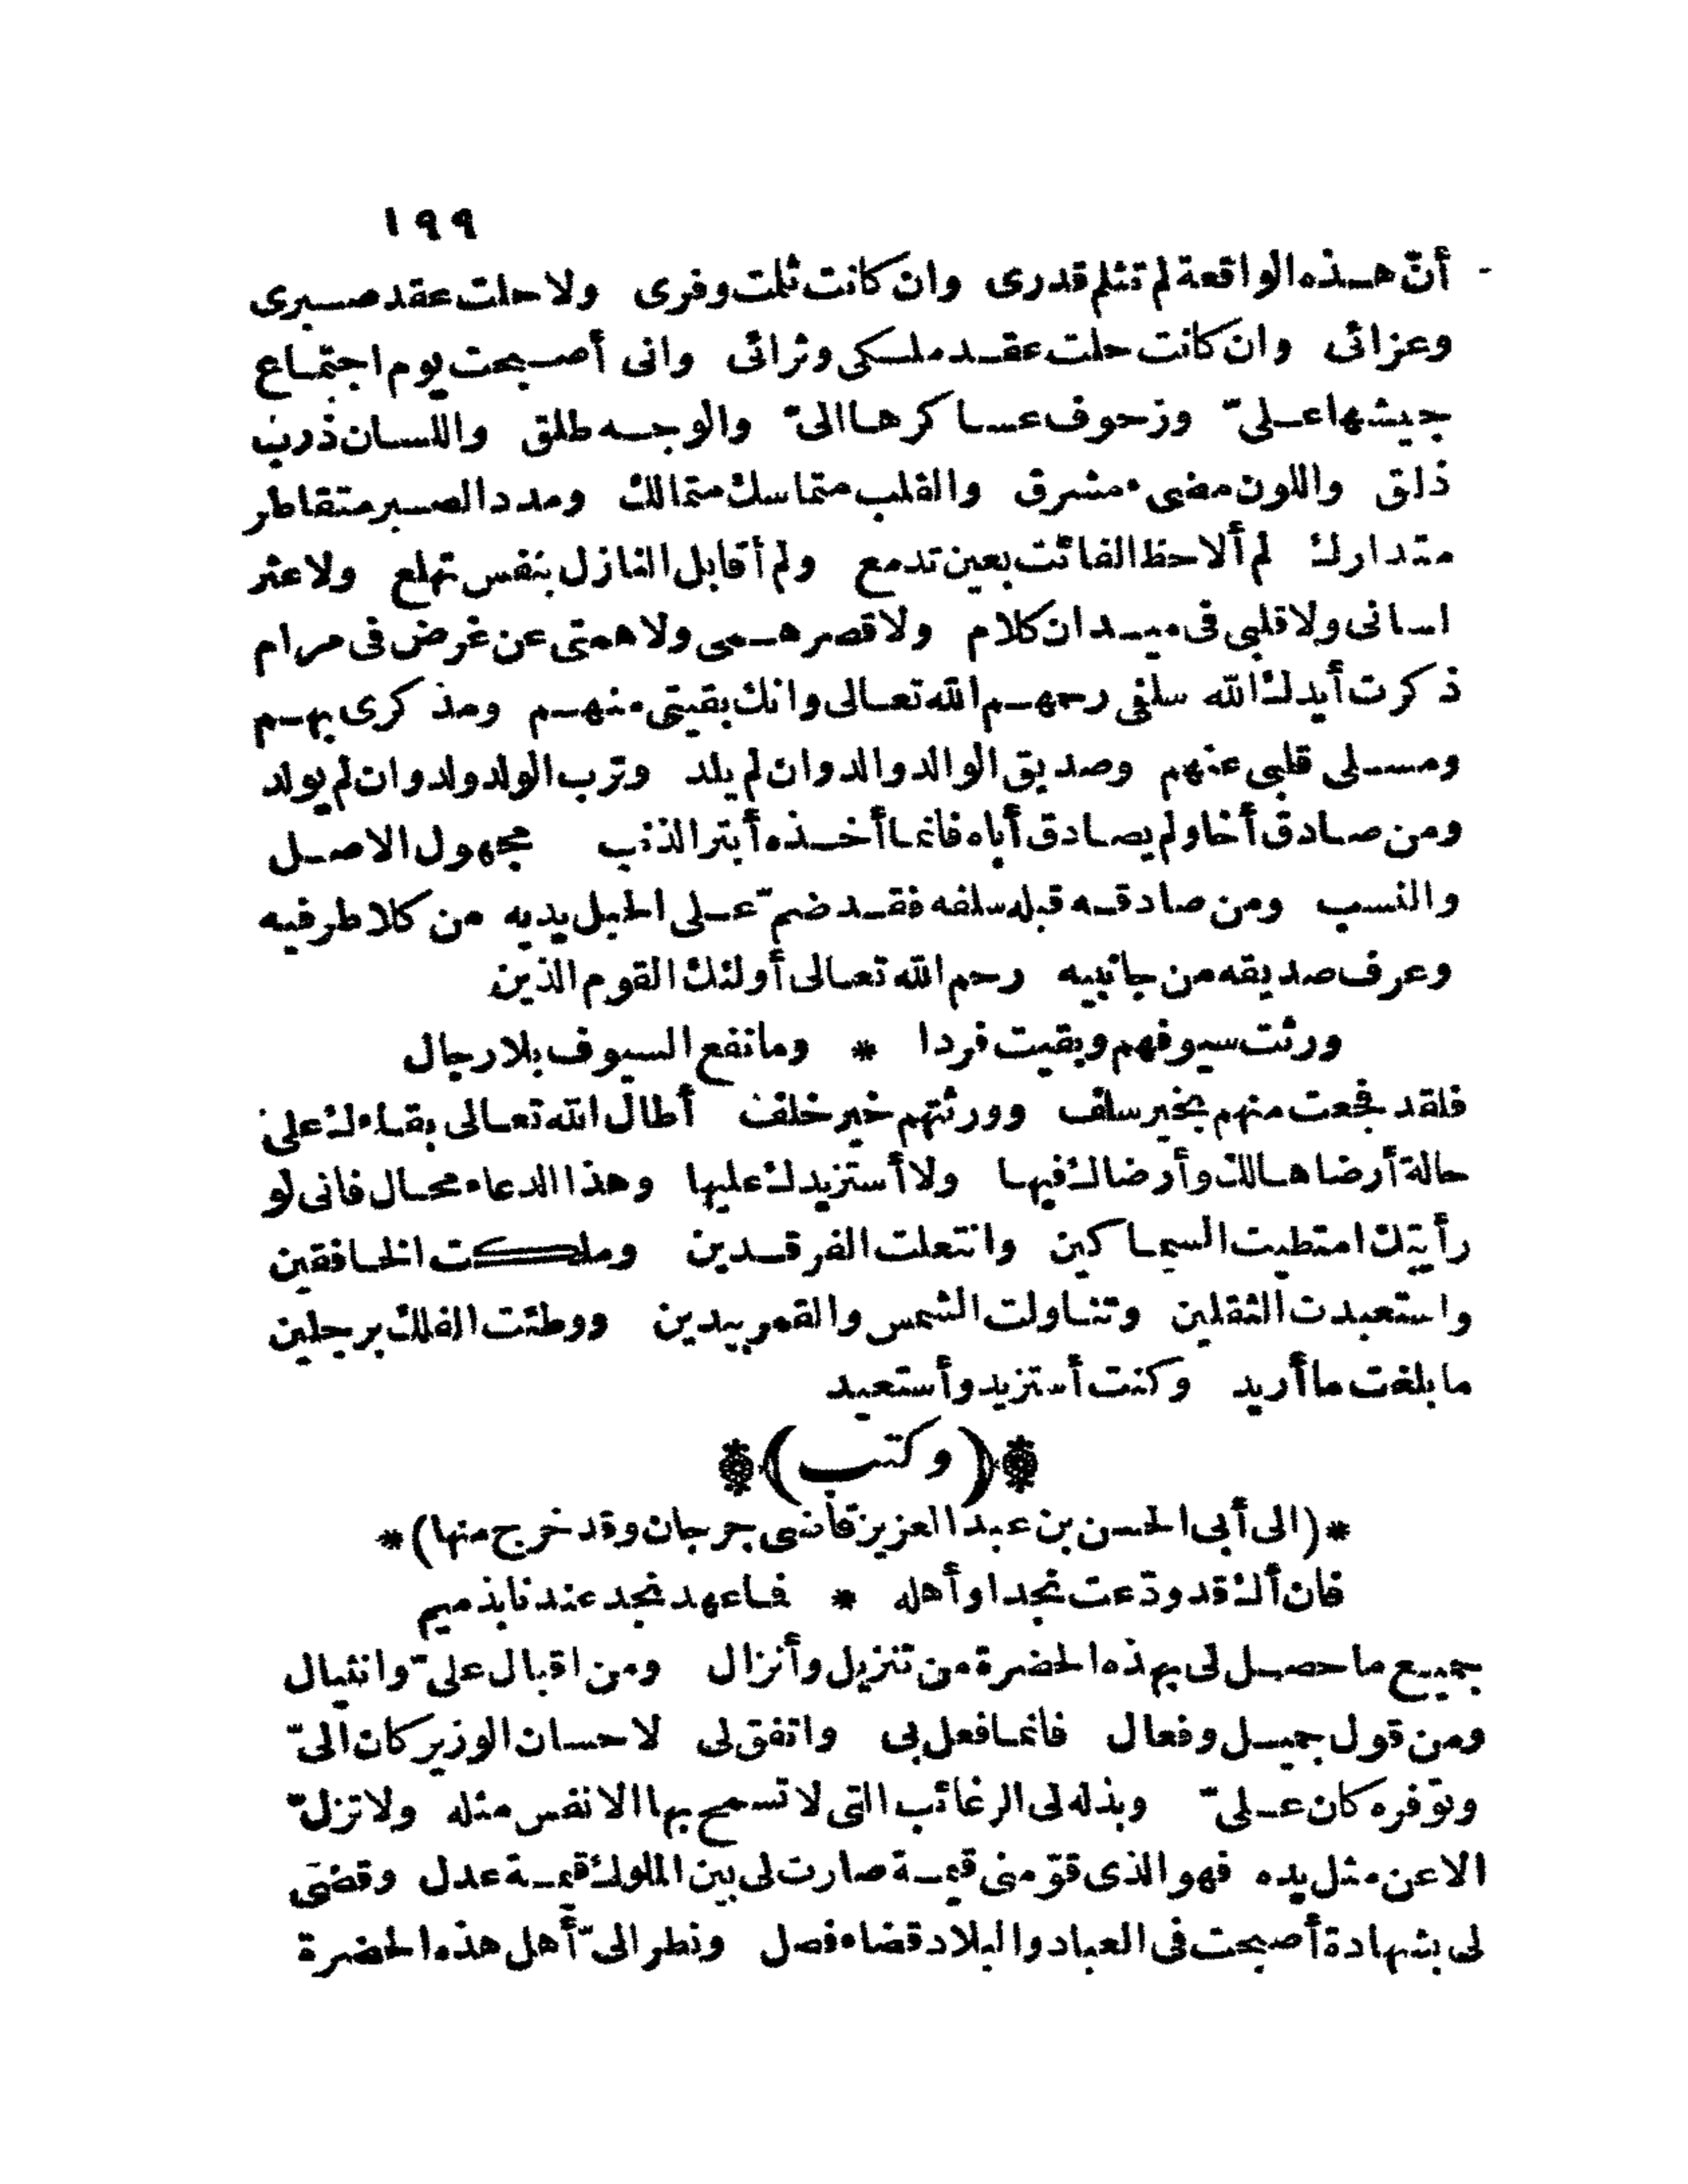 ١٩٩
أنّ هذه الواقعة لم تثلم قدرى وان كانت ثلمت وفرى ولا حلت عقد صبرى
وعزائى وان كانت حلت عقد ملكى وثرائى وانى أصبحت يوم اجتماع
جيشها علىّ وزحوف عساكرها الىّ والوجه طلق واللسان ذرب
ذلق واللون مضىء مشرق والقلب متماسك متمالك ومدد الصبر متقاطر
متدارك لم ألاحظ الفائت بعين تدمع ولم أقابل النازل بنفس تهلع ولا عثر
لسانى ولا قلبى فى ميدان كلام ولا قصر همى ولا همتى عن غرض فى مرام
ذكرت أيدك الله سلفى رحمهم الله تعالى وانك بقيتى منهم ومذكرى بهم
ومسلى قلبى عنهم وصديق الوالد والد وان لم يلد وترب الولد ولد وان لم يولد
ومن صادق أخا ولم يصادق أباه فانما أخذه أبتر الذنب مجهول الاصل
والنسب ومن صادقه قبله سلفه فقد ضمّ على الحبل يديه من كلا طرفيه
وعرف صديقه من جانبيه رحم الله تعالى أولئك القوم الذين
ورثت سيوفهم وبقيت فردا * وما نفع السيوف بلا رجال
فلقد فجعت منهم بخير سلف وورثتهم خير خلف أطال الله تعالى بقاءك على
حالة أرضاها لك وأرضاك فيها ولا أستزيدك عليها وهذا الدعاء محال فانى لو
رأيتك امتطيت السماكين وانتعلت الفرقدين وملكت الخافقين
واستعبدت الثقلين وتناولت الشمس والقمر بيدين ووطئت الفلك برجلين
ما بلغت ما أريد وكنت أستزيد وأستعيد
(وكتب)
*(الى أبى الحسن بن عبد العزيز قاضى جرجان وقد خرج منها)*
فان ألك قد ودّعت نجدا وأهله * فاعهد نجد عندنا بذميم
جميع ما حصل لى بهذه الحضرة من تنزيل وأنزال ومن اقبال علىّ وانثيال
ومن قول جميل وفعال فانما فعل بى واتفق لى لاحسان الوزير كان الىّ
وتوفره كان علىّ وبذله لى الرغائب التى لا تسمح بها الا نفس مثله ولا تزلّ
الا عن مثل يده فهو الذى قوّمنى قيمة صارت لى بين الملوك قيمة عدل وقضى
لى بشهادة أصبحت فى العباد والبلاد قضاء فصل ونظر الىّ أهل هذه الحضرة